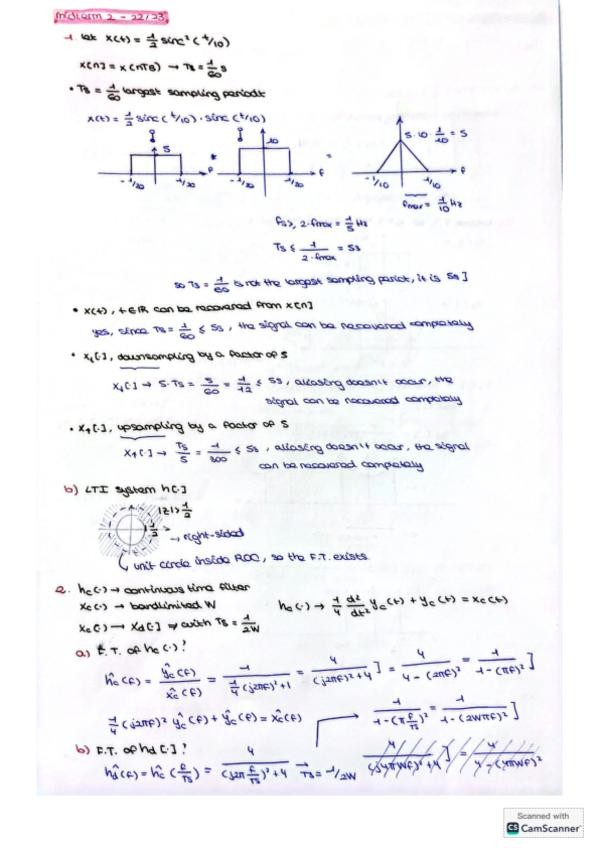 midterm 2 - 22/23
1. let x(t) = 1/2 sinc²(t/10)
x[n] = x(nTs) → Ts = 1/60 s
• Ts = 1/60 largest sampling period?
x(t) = 1/2 sinc(t/10) · sinc(t/10)
5 * 10 = 5·10·1/10 = 5
-1/20 1/20 f -1/20 1/20 f -1/10 1/10 f
fmax = 1/10 Hz
fs ≥ 2·fmax = 1/5 Hz
Ts ≤ 1/(2·fmax) = 5s
so Ts = 1/60 is not the largest sampling period, it is 5s]
• x(t), t∈IR can be recovered from x[n]
yes, since Ts = 1/60 ≤ 5s, the signal can be recovered completely
• x↓[·], downsampling by a factor of 5
x↓[·] → 5·Ts = 5/60 = 1/12 ≤ 5s, aliasing doesn't occur, the
signal can be recovered completely
• x↑[·], upsampling by a factor of 5
x↑[·] → Ts/5 = 1/300 ≤ 5s, aliasing doesn't occur, the signal
can be recovered completely
b) LTI system h[·]
|z|>1/2
1/2
→ right-sided
unit circle inside ROC, so the F.T. exists
2. hc(·) → continuous time filter
xc(·) → bandlimited W hc(·) → 1/4 d²/dt² yc(t) + yc(t) = xc(t)
xc(·) → xd[·] → with Ts = 1/2W
a) F.T. of hc(·)?
ĥc(f) = ŷc(f)/x̂c(f) = 1/(1/4(j2πf)²+1) = 4/((j2πf)²+4)] = 4/(4-(2πf)²) = 1/(1-(πf)²)]
1/4(j2πf)² ŷc(f) + ŷc(f) = x̂c(f) → 1/(1-(π f/Ts)²) = 1/(1-(2Wπf)²)]
b) F.T. of hd[·]?
ĥd(f) = ĥc(f/Ts) = 4/((j2π f/Ts)²+4) → Ts = 1/2W 4/((j4πWf)²+4) = 4/(4-(4πWf)²)
Scanned with
CS CamScanner